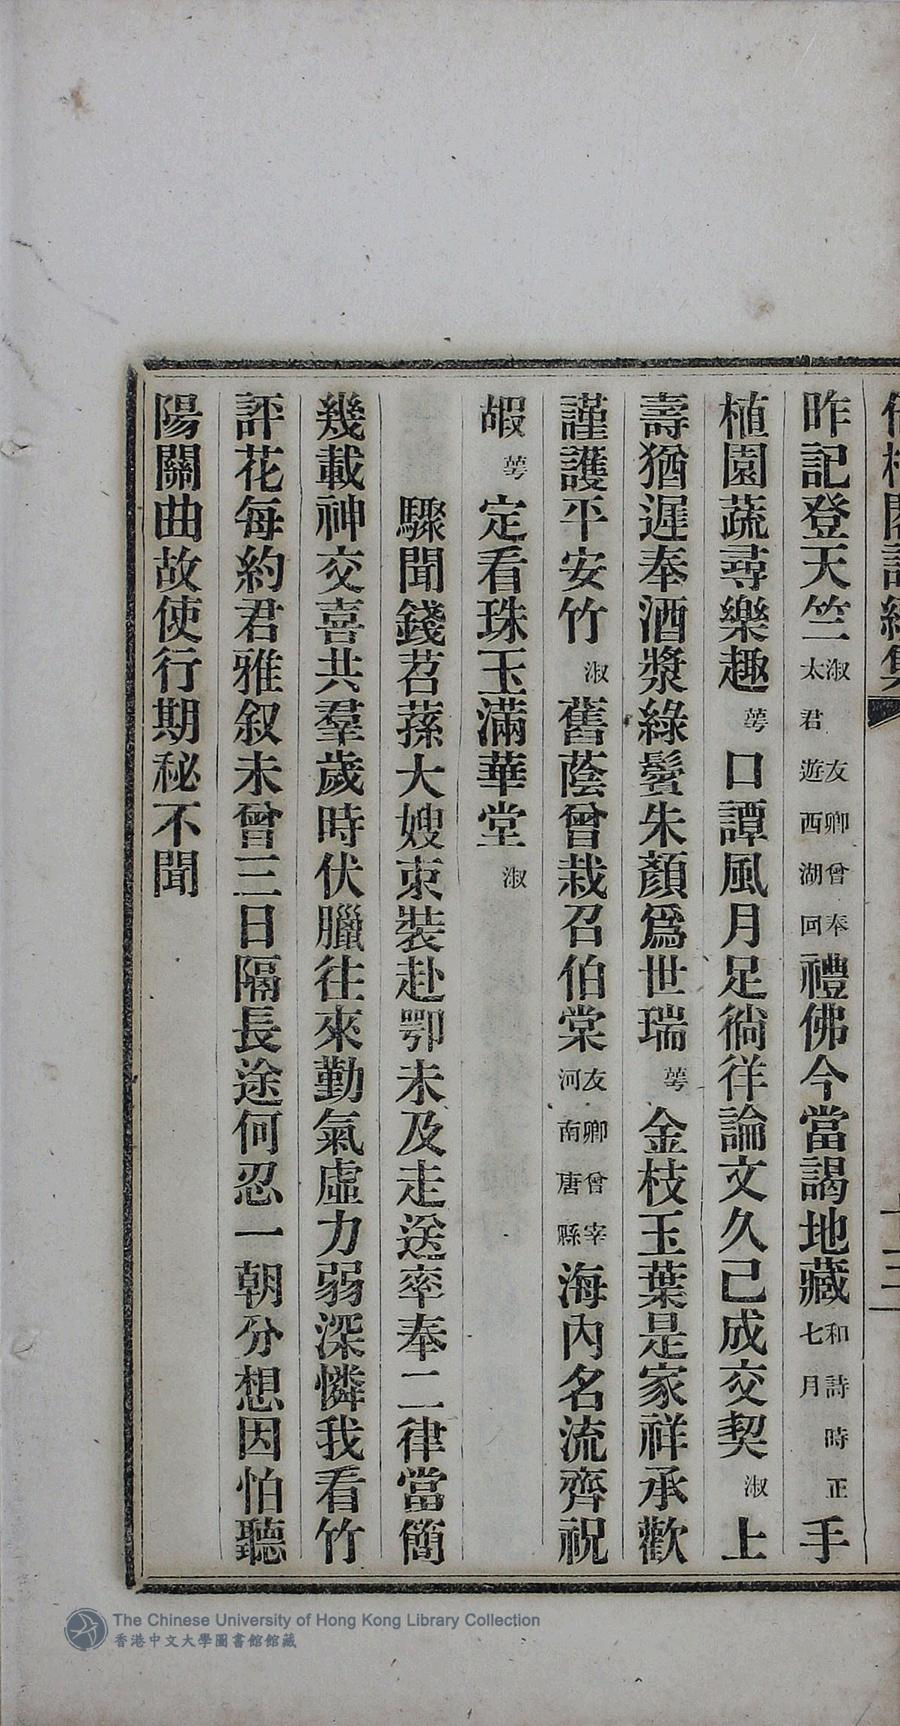 昨記登天竺淑友卿曾奉太君遊西湖回禮佛今當謁地藏和詩時正七月手
植園蔬尋樂趣萼口譚風月足徜徉論文久已成交契淑上
壽猶遲奉酒漿綠鬢朱顏爲世瑞萼金枝玉葉是家祥承歡
謹護平安竹淑舊蔭曾栽召伯棠友卿曾宰河南唐縣海內名流齊祝
嘏萼定看珠玉滿華堂淑
驟聞錢苕蓀大嫂束裝赴鄂未及走送率奉二律當簡
幾載神交喜共羣歲時伏臘往來勤氣虛力弱深憐我看竹
評花每約君雅叙未曾三日隔長途何忍一朝分想因怕聽
陽關曲故使行期秘不聞
The Chinese University of Hong Kong Library Collection
香港中文大學圖書館館藏